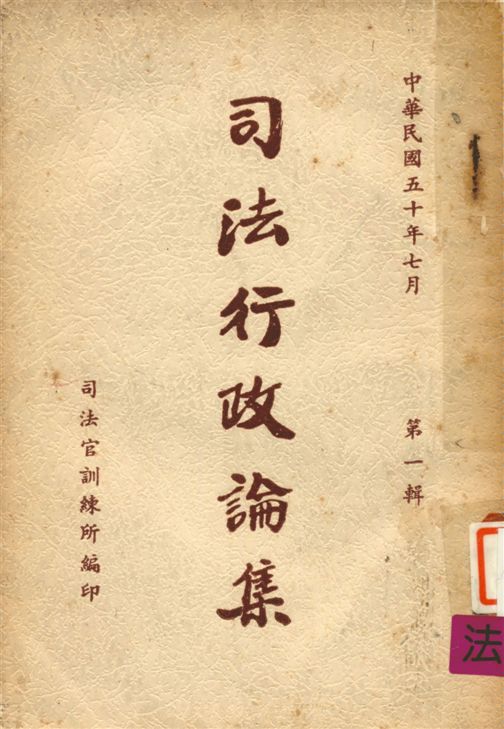 中華民國五十年七月
第一輯
司法行政論集
司法官訓練所編印
法